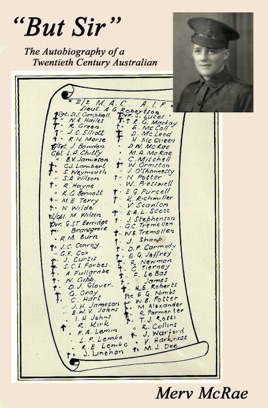 "But Sir"
The Autobiography of a
Twentieth Century Australian
2/2 M.A.C. A.I.F.
Lieut. A.G. Robertson
D.S. Campbell
N.R. Hailes
R. Green
J.C. Elliott
R.N. Morse
J. Bowden
L.A. Chitty
B.V. Jamieson
C.J. Lambert
S. Weymouth
S.A. Wilson
R. Hayne
R.G. Bennett
M.B. Terry
N. Wilde
M. Wilson
G.J.T. Berridge
R.M. Burn
J.C. Corey
G.F. Cox
J. Curtis
S.C.J. Forbes
A. Fullgrabe
W. Gibb
D.J. Glover
G. Gray
C. Hart
J.H. Jameson
E.W.V. Johns
I.W. Johns
R. Kirk
F.A. Lemin
L.P. Lemke
R.E. Lemke
J. Linehan
S. Lucas
R.G. MacKay
E. McColl
D. McLeod
H. McQueen
D.W. McRae
M.A. McRae
C. Mitchell
W. Ormston
J. O'Shannessy
N. Potter
W. Presswell
E.G. Purcell
K. Richmiller
V. Scanlon
E.A.L. Scott
J. Stephenson
G.C. Trembller
W.B. Tremplez
J. Sharp
D.P. Carmody
E.G. Jeffrey
R. Newman
C. Tierney
E. Le Bas
James
H.E. Roberts
E.G. Nimbs
W.B. Potter
M. Alexander
R. Parmenter
T.J. Rotti
R. Collins
J. Warford
V. Harkness
M.J. Dee
Merv McRae